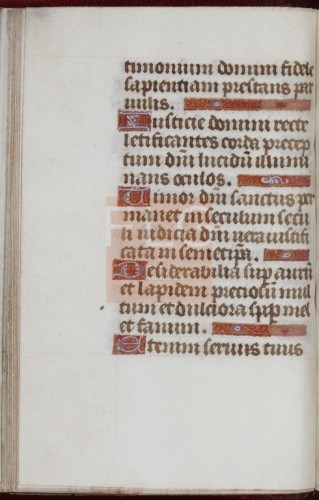 timonium domini fidele
sapientiam prestans par
uulis.
Iusticie domini recte
letificantes corda precep
tum dm̄ lucidū illumi
nans oculos.
Timor dm̄ sanctus per
manet in seculum secu
li iudicia dm̄ uera iustifi
cata in semetip̄a.
Desiderabilia sup aurū
et lapidem preciosū mul
tum et dulciora sup mel
et fauum.
Etenim seruus tuus